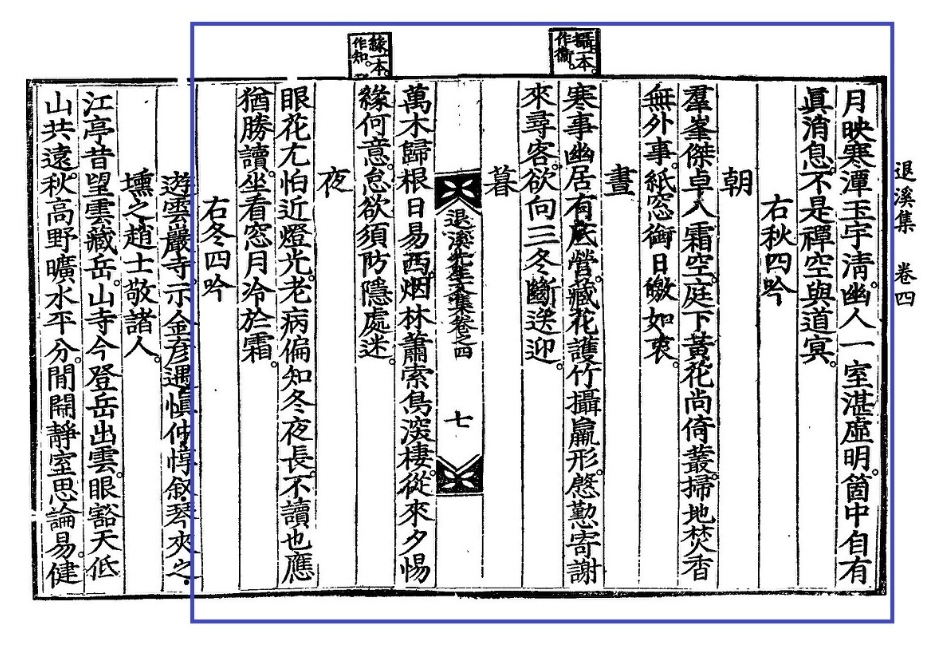 退溪集 卷四
月映寒潭玉宇淸。幽人一室湛虛明。箇中自有
眞消息。不是禪空與道冥。
右秋四吟
朝
羣峯傑卓入霜空。庭下黃花尚倚叢。掃地焚香
無外事。紙窓銜日皦如衷。
晝
寒事幽居有底營。藏花護竹攝羸形。慇懃寄謝
來尋客。欲向三冬斷送迎。
攝一本。
作衛。
暮
退溪先生文集卷之四 七
萬木歸根日易西。烟林蕭索鳥深棲。從來夕惕
緣何意。怠欲須防隱處迷。
緣一本。
作知。
夜
眼花尤怕近燈光。老病偏知冬夜長。不讀也應
猶勝讀。坐看窓月冷於霜。
右冬四吟
遊雲巖寺。示金彦遇,愼仲,惇叙,琴夾之,
壎之,趙士敬諸人。
江亭昔望雲藏岳。山寺今登岳出雲。眼豁天低
山共遠。秋高野曠水平分。閒開靜室思論易。健